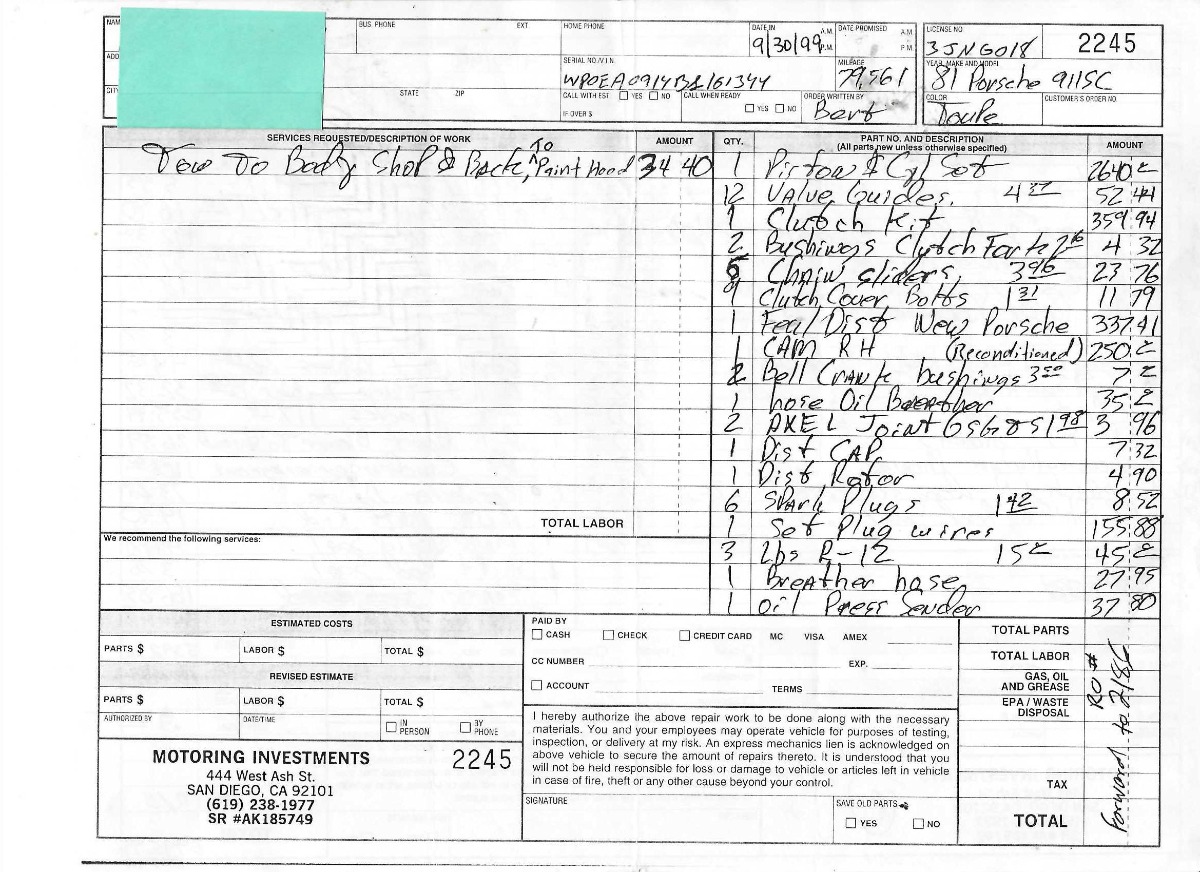 NAM
BUS. PHONE EXT. HOME PHONE DATE IN A.M. P.M. DATE PROMISED A.M. P.M. LICENSE NO
9/30/99 3JNG018 2245
ADD
SERIAL NO./V.I.N. MILEAGE YEAR, MAKE AND MODEL
WPOEA0914BS161344 79,561 81 Porsche 911SC
CIT STATE ZIP CALL WITH EST. YES NO CALL WHEN READY ORDER WRITTEN BY COLOR CUSTOMER'S ORDER NO.
IF OVER $ YES NO Bert Toupe
SERVICES REQUESTED/DESCRIPTION OF WORK AMOUNT QTY. PART NO. AND DESCRIPTION AMOUNT
(All parts new unless otherwise specified)
Tow To Body Shop & Back, To Paint Hood 34 40
1 Piston & Cyl Set 2640.=
12 Value Guides. 4 37 52 44
1 Clutch Kit 359 94
2 Bushings Clutch Fork 2 16 4 32
Chain sliders, 3 96 23 76
Clutch Cover Bolts 1 31 11 79
1 Dist New Porsche 337.41
1 CAM RH (Reconditioned) 250.=
2 Bell Crank bushings 3 50 7 =
1 hose Oil Breather 35 =
2 AXEL Joint 1 98 3 96
1 Dist CAP 7 32
1 Dist Rotor 4 90
6 Spark Plugs 1 42 8 52
TOTAL LABOR
1 Set Plug wires 155.88
We recommend the following services:
3 Lbs R-12 15 = 45 =
1 Breather hose 27 95
1 Oil Press Sender 37 80
ESTIMATED COSTS
PARTS $ LABOR $ TOTAL $
REVISED ESTIMATE
PARTS $ LABOR $ TOTAL $
AUTHORIZED BY DATE/TIME IN PERSON BY PHONE
MOTORING INVESTMENTS 2245
444 West Ash St.
SAN DIEGO, CA 92101
(619) 238-1977
SR #AK185749
PAID BY
CASH CHECK CREDIT CARD MC VISA AMEX
CC NUMBER EXP.
ACCOUNT TERMS
I hereby authorize the above repair work to be done along with the necessary
materials. You and your employees may operate vehicle for purposes of testing,
inspection, or delivery at my risk. An express mechanics lien is acknowledged on
above vehicle to secure the amount of repairs thereto. It is understood that you
will not be held responsible for loss or damage to vehicle or articles left in vehicle
in case of fire, theft or any other cause beyond your control.
SIGNATURE SAVE OLD PARTS
YES NO
TOTAL PARTS
TOTAL LABOR
GAS, OIL
AND GREASE
EPA / WASTE
DISPOSAL
TAX
TOTAL
RO #
Forward to 2186